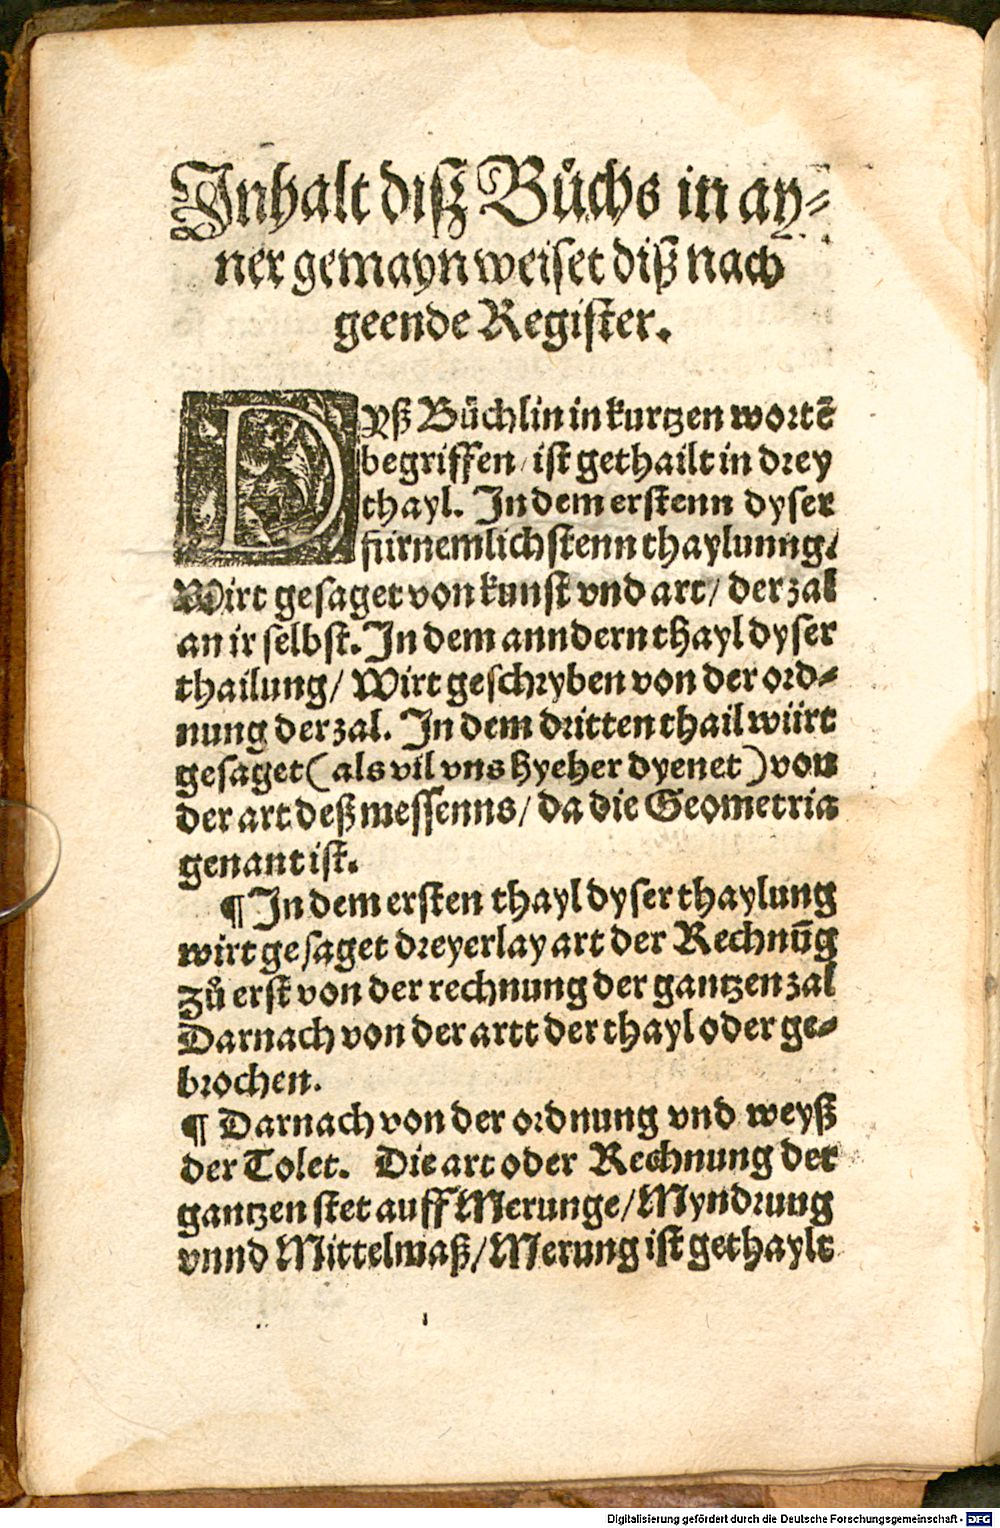 Inhalt diſz Bůchs in ay⸗
ner gemayn weiſet diſz nach
geende Regiſter.
DYß Bůchlin in kurtzen wortẽ
begriffen / iſt gethailt in drey
thayl. In dem erſtenn dyſer
fürnemlichſtenn thaylunng /
Wirt geſaget von kunſt vnd art / der zal
an ir ſelbſt. In dem anndern thayl dyſer
thailung / Wirt geſchryben von der ord⸗
nung der zal. In dem dritten thail würt
geſaget ( als vil vns hyeher dyenet ) von
der art deß meſſenns / da die Geometria
genant iſt.
¶ In dem erſten thayl dyſer thaylung
wirt geſaget dreyerlay art der Rechnũg
zů erſt von der rechnung der gantzen zal
Darnach von der artt der thayl oder ge⸗
brochen.
¶ Darnach von der ordnung vnd weyß
der Tolet. Die art oder Rechnung der
gantzen ſtet auff Merunge / Myndrung
vnnd Mittelmaß / Merung iſt gethaylt
Digitalisierung gefördert durch die Deutsche Forschungsgemeinschaft - DFG